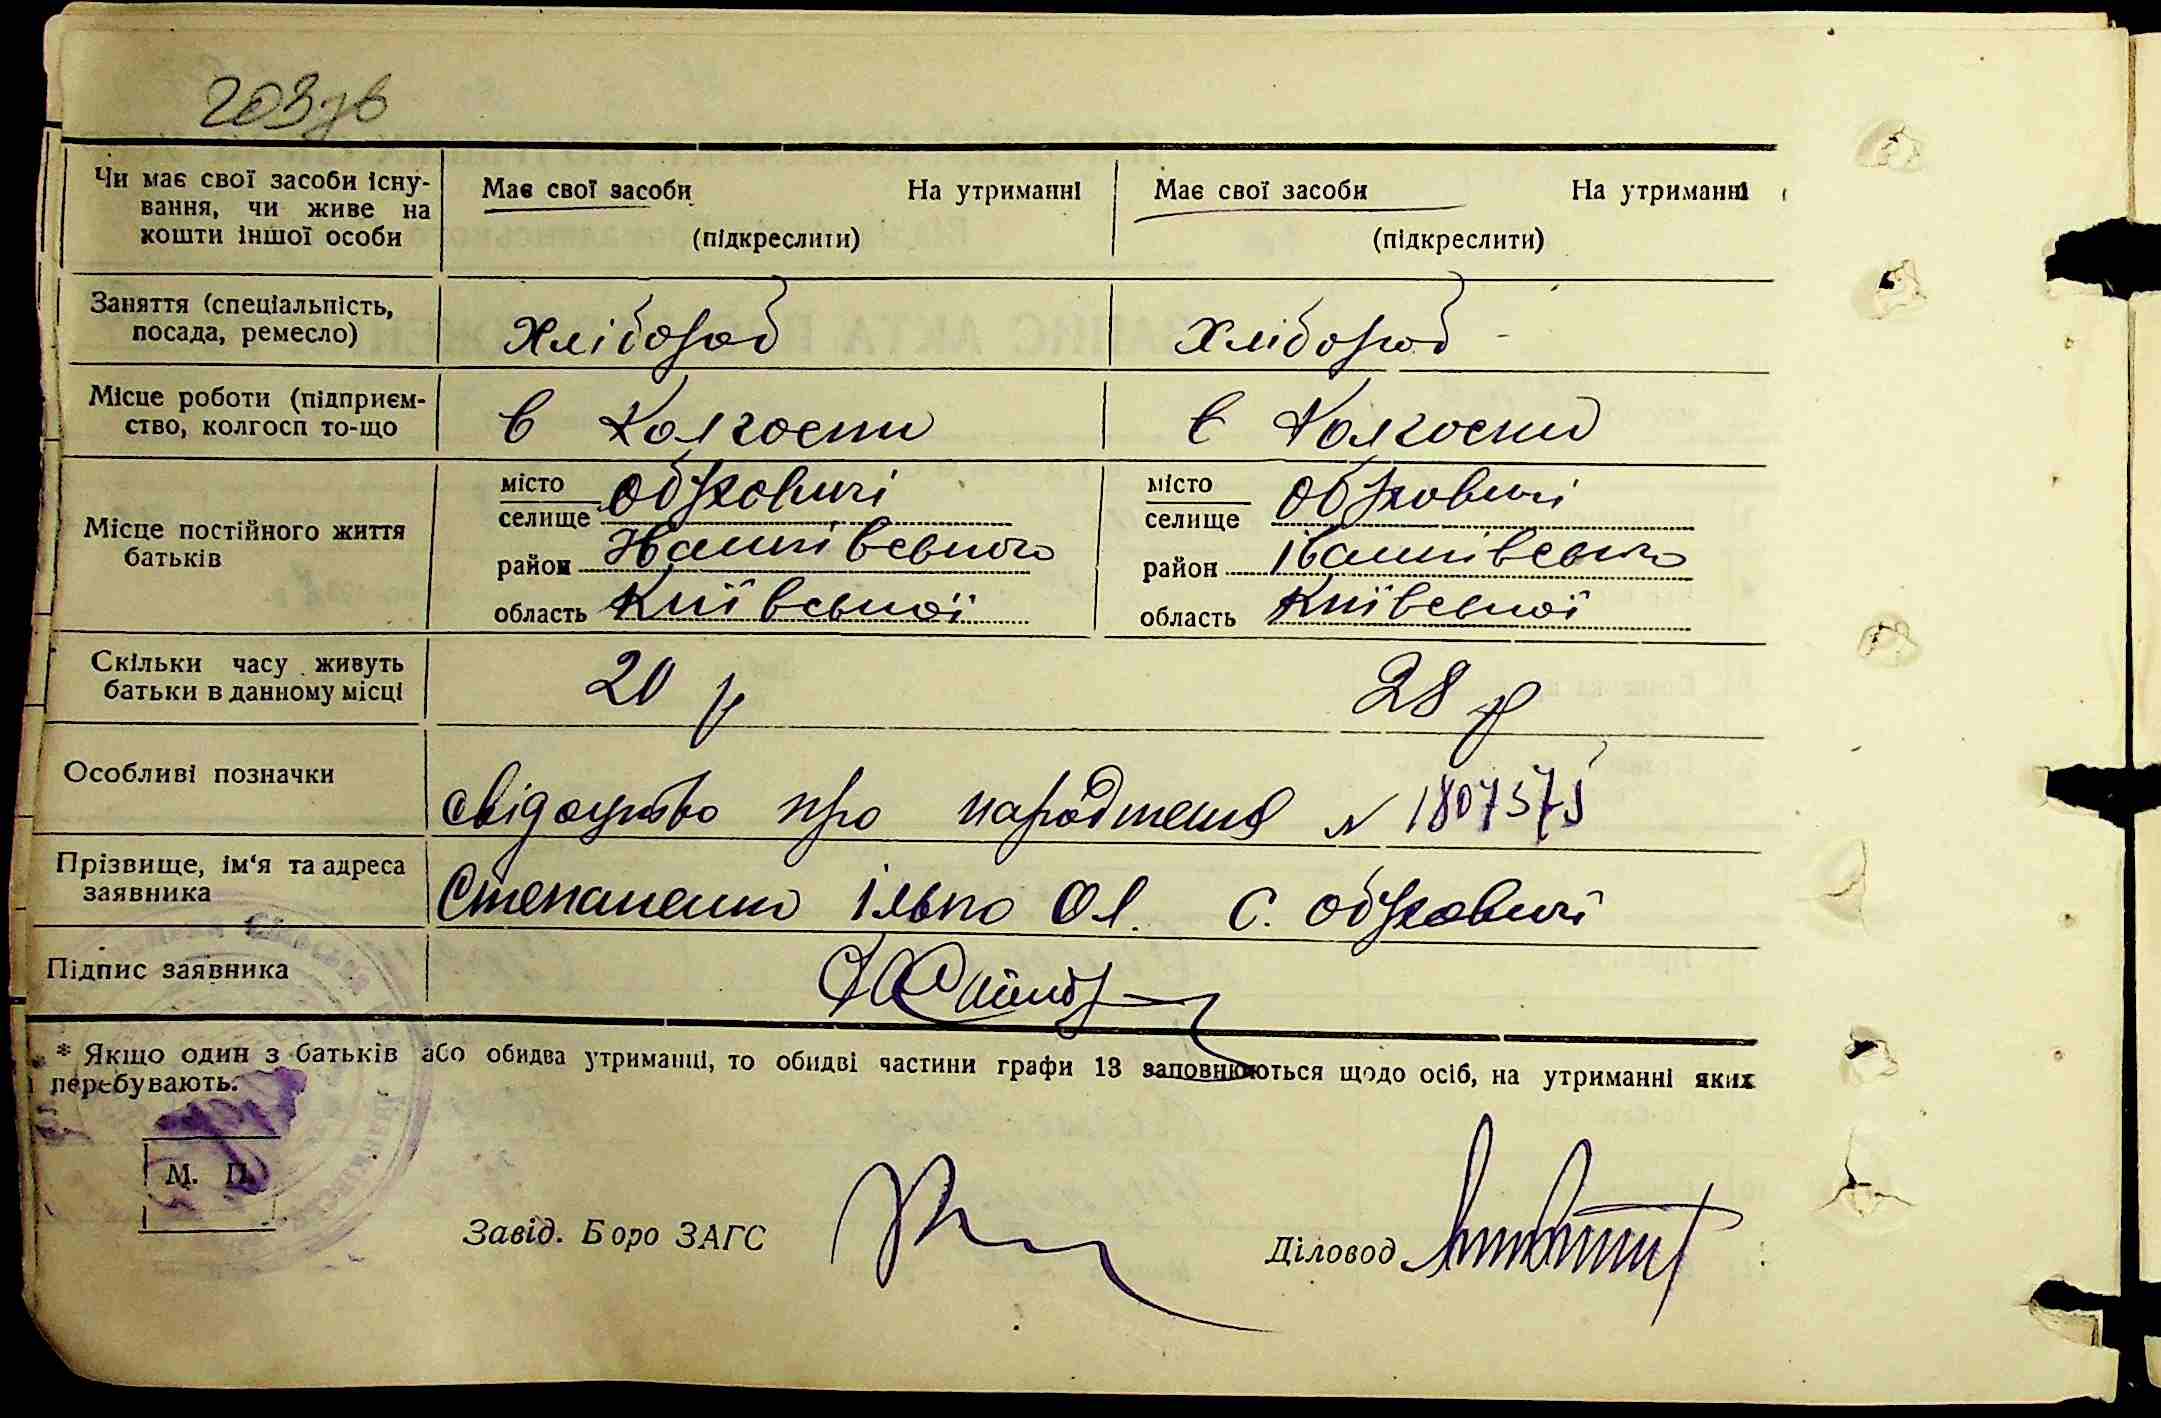 203зв
Чи має свої засоби існу-
вання, чи живе на
кошти іншої особи
Має свої засоби На утриманні
(підкреслити)
Має свої засоби На утриманні
(підкреслити)
Заняття (спеціальність,
посада, ремесло)
Хлібороб
Хлібороб
Місце роботи (підприєм-
ство, колгосп то-що
в Колгоспи
в Колгоспи
Місце постійного життя
батьків
місто
селище Обуховичі
район Іванківського
область Київської
місто
селище Обуховичі
район Іванківського
область Київської
Скільки часу живуть
батьки в данному місці
20 р
28 р
Особливі позначки
свідоцтво про народження N 1807375
Прізвище, ім'я та адреса
заявника
Степаненко Ілько Ол. с. Обуховичі
Підпис заявника
* Якщо один з батьків або обидва утриманці, то обидві частини графи 13 заповнюються щодо осіб, на утриманні яких
перебувають.
М. П.
Завід. Боро ЗАГС
Діловод